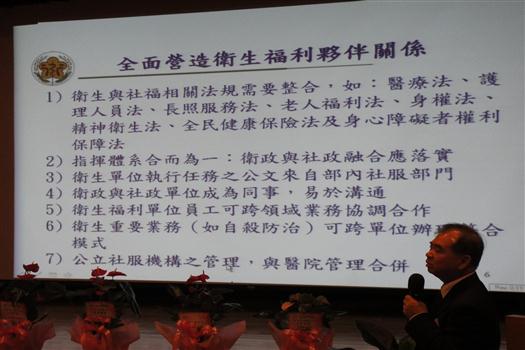 全面營造衛生福利夥伴關係
1) 衛生與社福相關法規需要整合，如：醫療法、護
理人員法、長照服務法、老人福利法、身權法、
精神衛生法、全民健康保險法及身心障礙者權利
保障法
2) 指揮體系合而為一：衛政與社政融合應落實
3) 衛生單位執行任務之公文來自部內社服部門
4) 衛政與社政單位成為同事，易於溝通
5) 衛生福利單位員工可跨領域業務協調合作
6) 衛生重要業務（如自殺防治）可跨單位辦理整合
模式
7) 公立社服機構之管理，與醫院管理合併
6